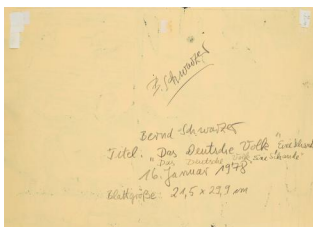 B. Schwarzer
Bernd Schwarzer
Titel: "Das Deutsche Volk"
"Das Deutsche Volk eine
16. Januar 1978
Blattgröße: 21,5 x 29,9 cm